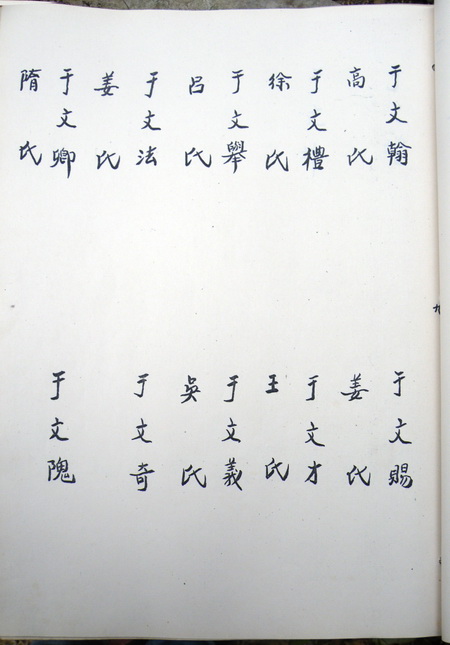 于文翰
高氏
于文禮
徐氏
于文舉
呂氏
于文法
姜氏
于文卿
隋氏
于文賜
姜氏
于文才
王氏
于文義
吳氏
于文奇
于文隗
九